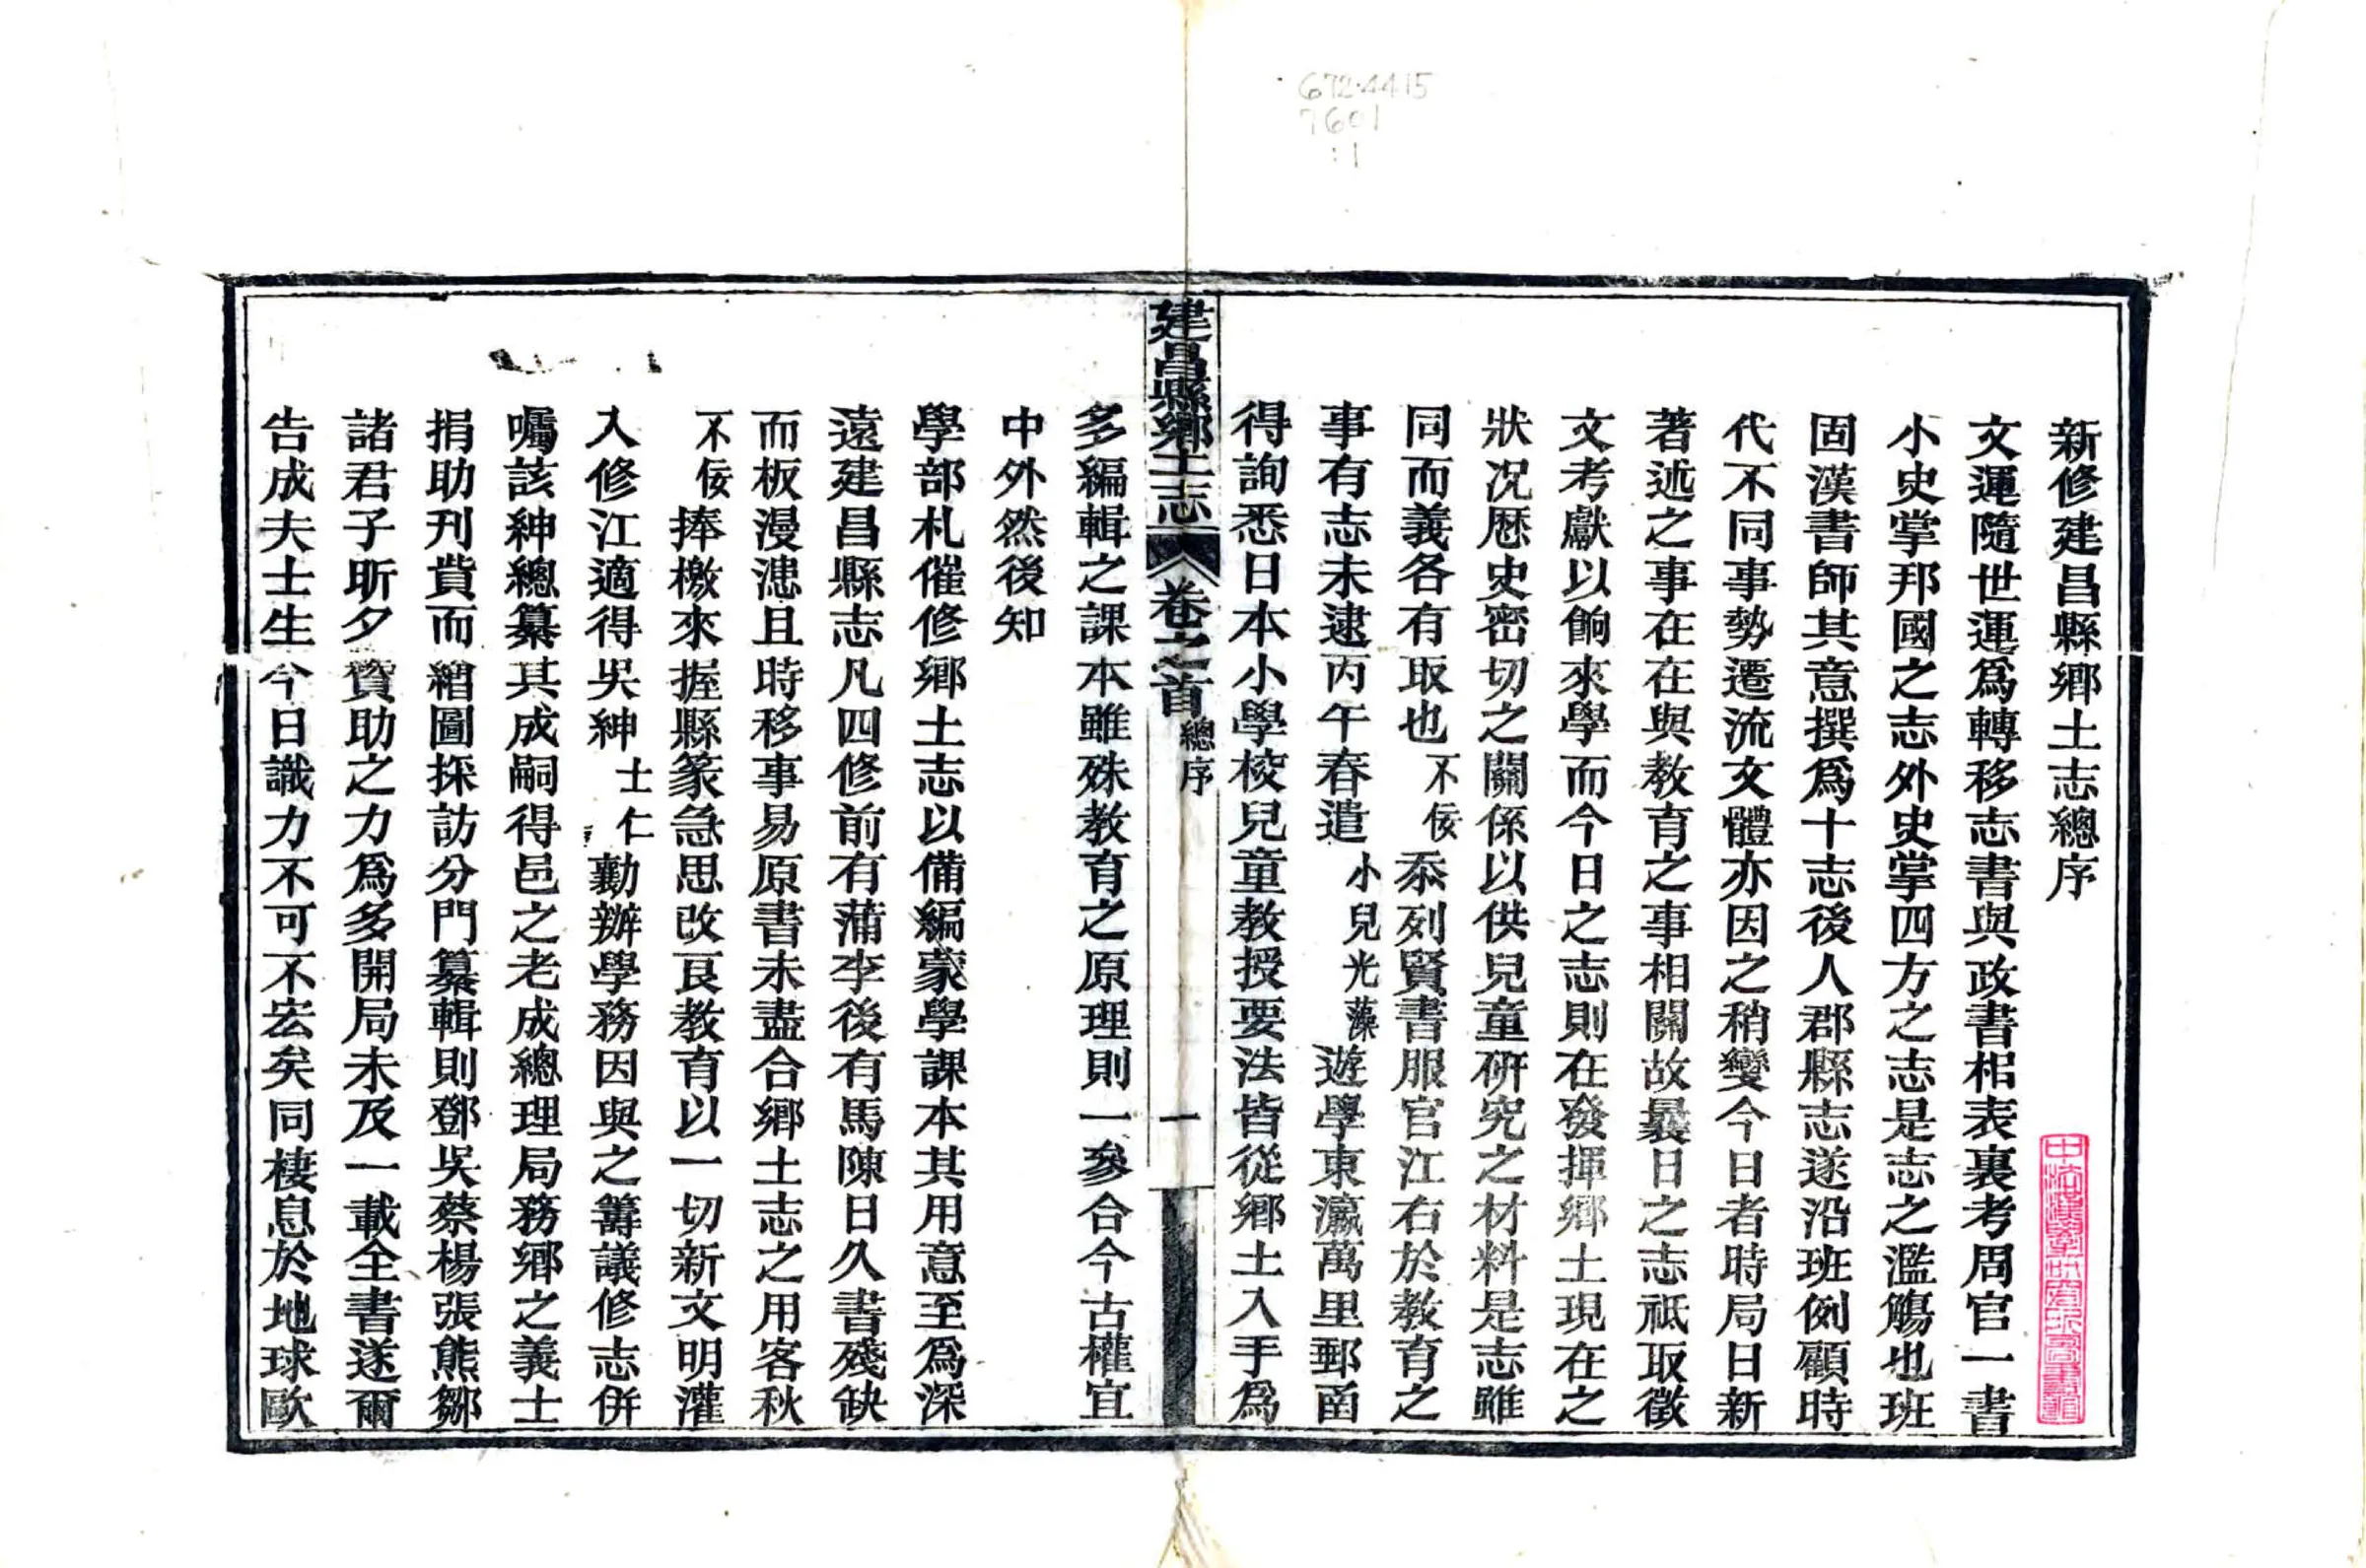 672.4415
7601
:1
新修建昌縣鄉土志總序
文運隨世運爲轉移志書與政書相表裏考周官一書
小史掌邦國之志外史掌四方之志是志之濫觴也班
固漢書師其意撰爲十志後人郡縣志遂沿班例顧時
代不同事勢遷流文體亦因之稍變今日者時局日新
著述之事在在與教育之事相關故曩日之志祗取徵
文考獻以餉來學而今日之志則在發揮鄉土現在之
狀况歷史密切之關係以供兒童研究之材料是志雖
同而義各有取也不佞忝列賢書服官江右於教育之
事有志未逮丙午春遣小兒光藻遊學東瀛萬里郵函
得詢悉日本小學校兒童教授要法皆從鄉土入手爲
建昌縣鄉土志 卷之首 總序 一
多編輯之課本雖殊教育之原理則一參合今古權宜
中外然後知
學部札催修鄉土志以備編蒙學課本其用意至爲深
遠建昌縣志凡四修前有蒲李後有馬陳日久書殘缺
而板漫漶且時移事易原書未盡合鄉土志之用客秋
不佞捧檄來握縣篆急思改良教育以一切新文明灌
入修江適得吳紳士仁勷辦學務因與之籌議修志併
囑該紳總纂其成嗣得邑之老成總理局務鄉之義士
捐助刋貲而繪圖採訪分門纂輯則鄧吳蔡楊張熊鄒
諸君子昕夕贊助之力爲多開局未及一載全書遂爾
告成夫士生今日識力不可不宏矣同棲息於地球歐